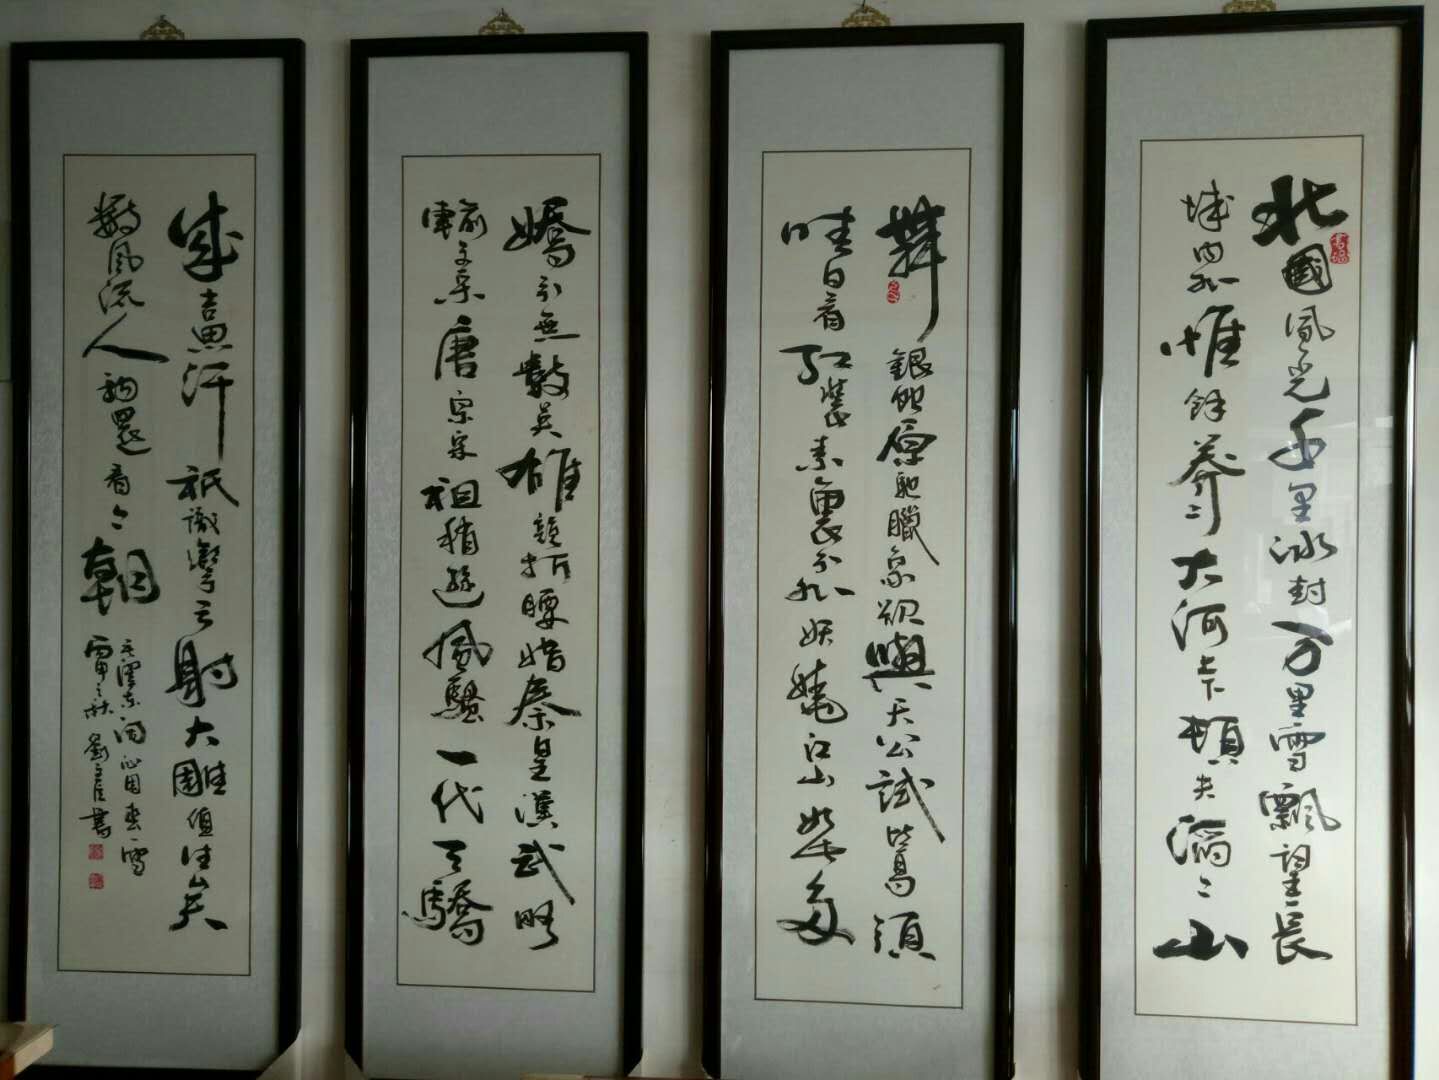 北國風光千里冰封万里雪飄望長
城内外惟餘莽〻大河上下頓失滔〻山
舞銀蛇原馳臘象欲與天公試比高須
晴日看红裝素裹分外妖嬈江山如此多
嬌引無數英雄競折腰惜秦皇漢武略
輸文采唐宗宋祖稍遜風騷一代天驕
成吉思汗祇識彎弓射大雕俱往矣
數風流人物還看今朝
毛澤東詞沁园春雪
丙申之秋劉
書